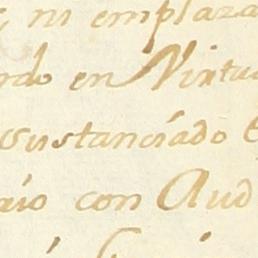 ni emplaza
rdo en Virtu
sustanciado
rio con Aud